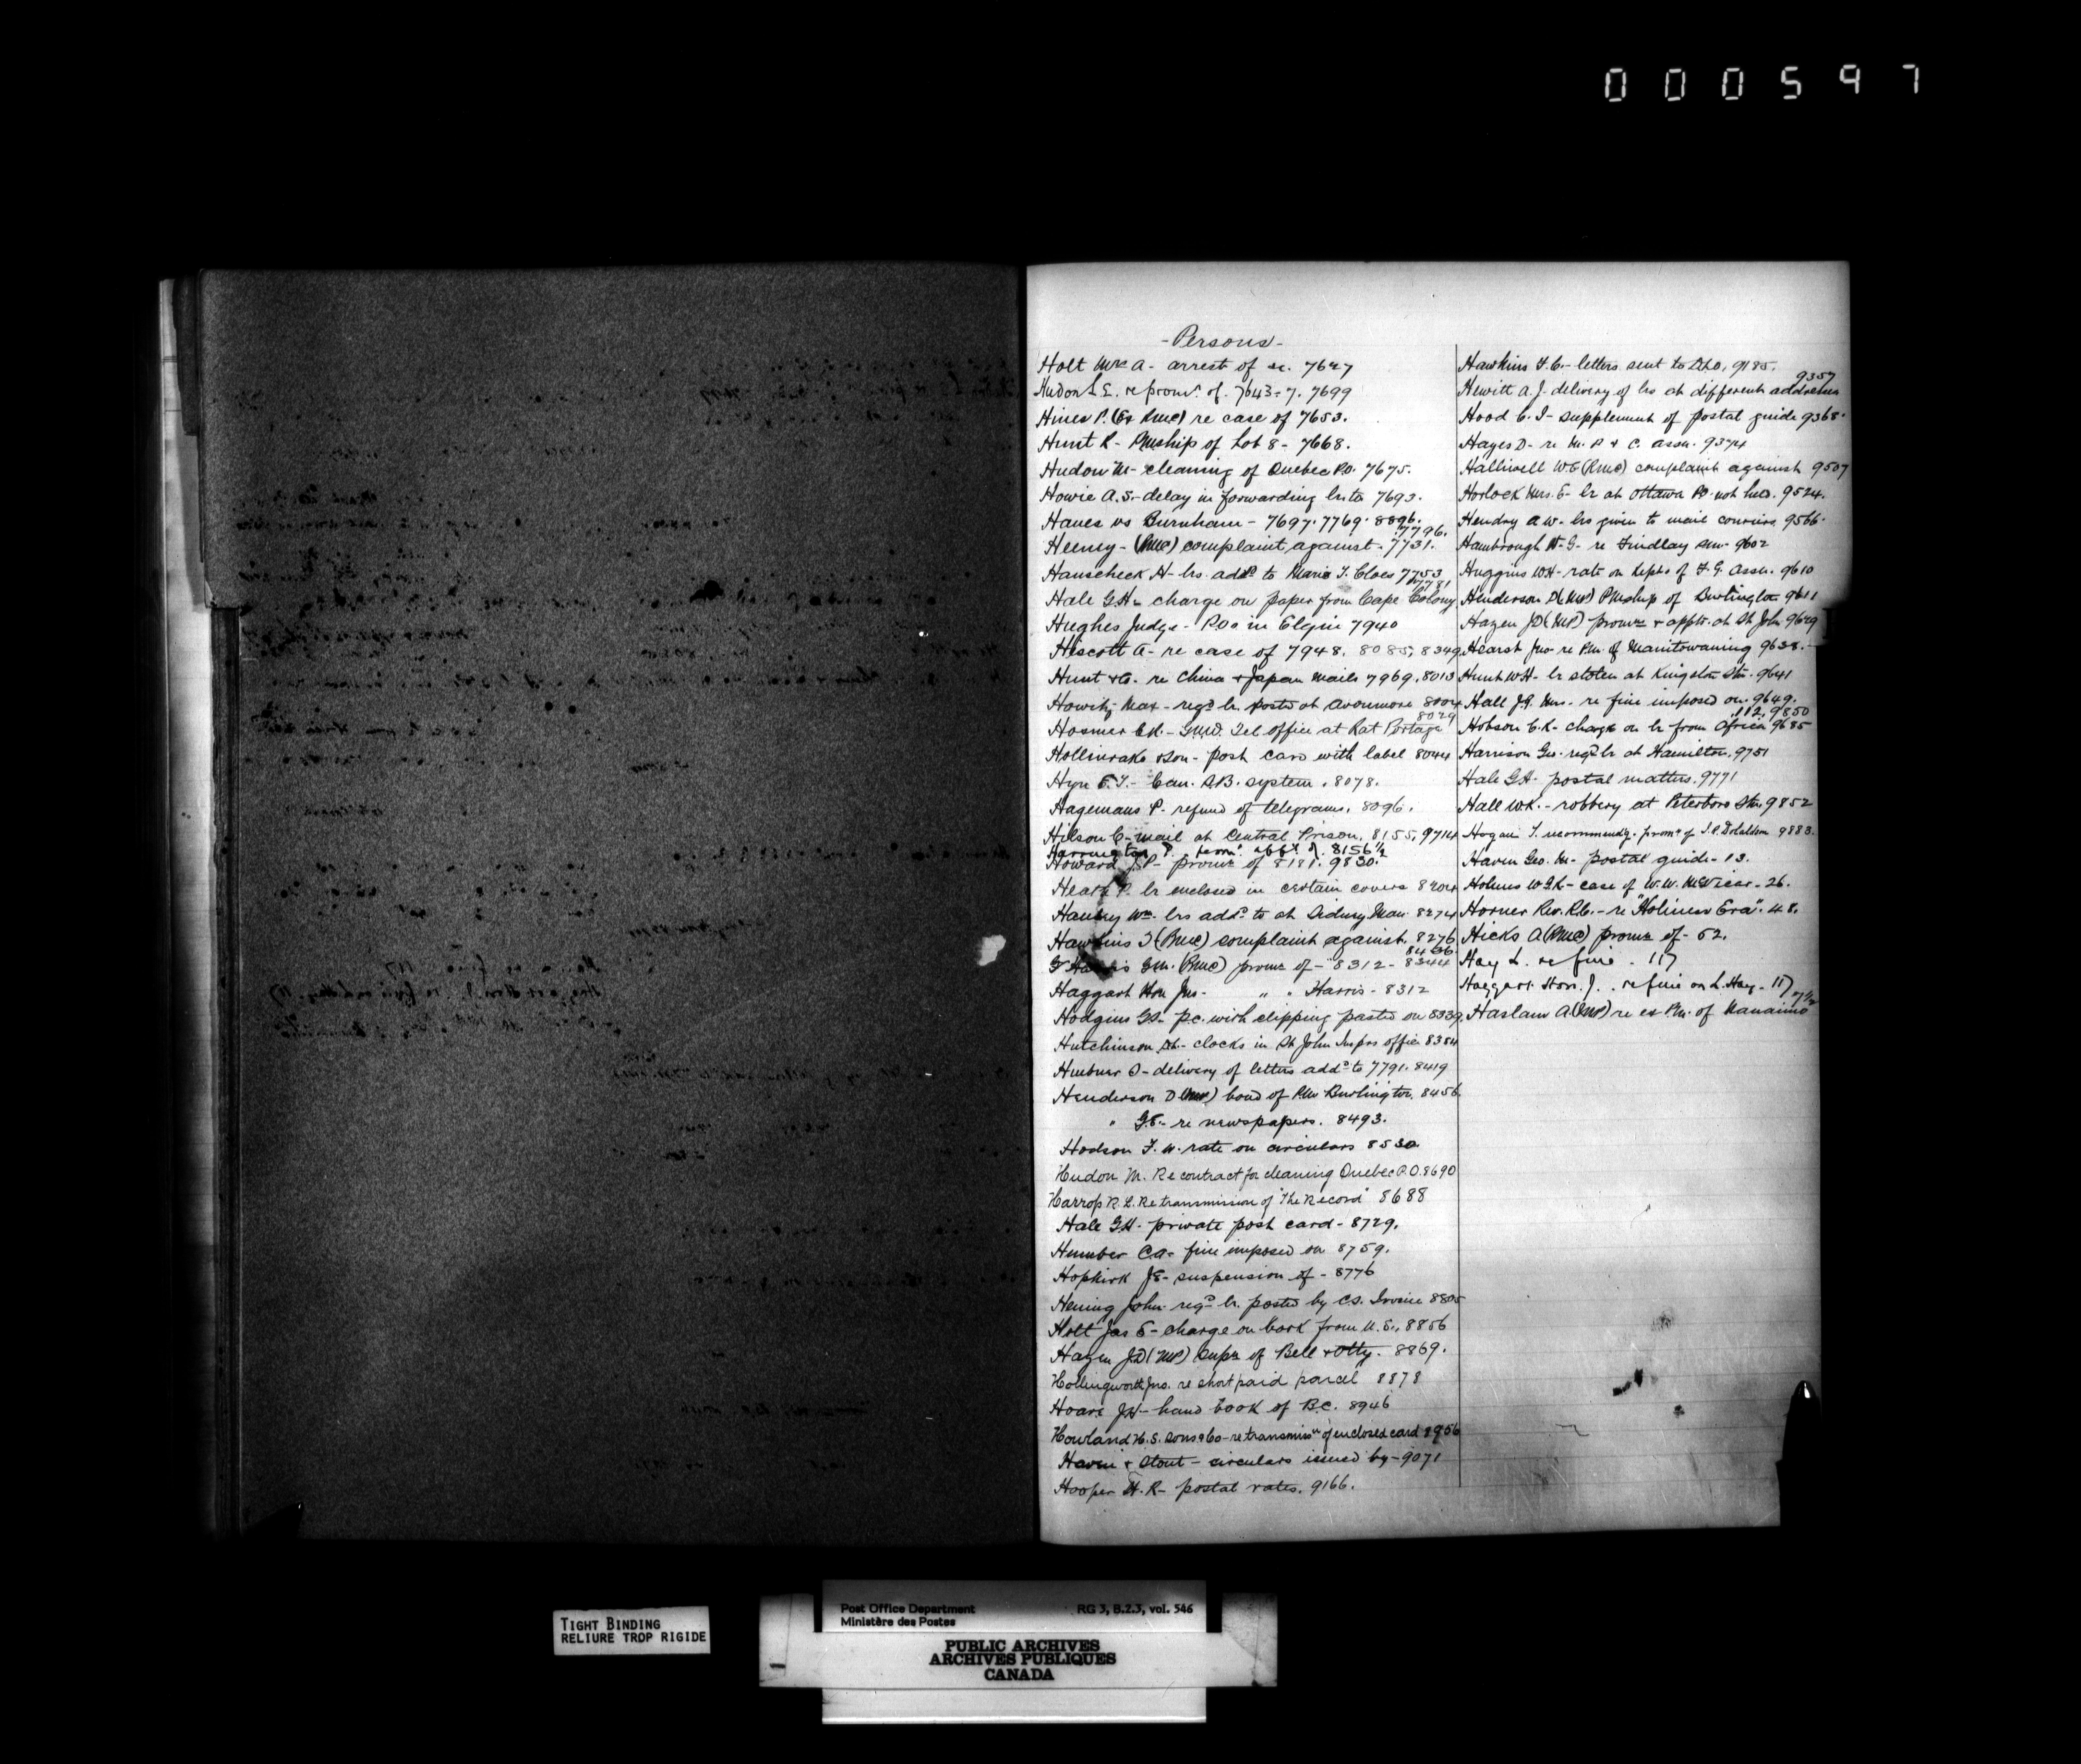 0 0 0 5 9 7
- Persons -
Holt Mr A - arrest of 7627
Hudon L E. re prom. of. 7643-7. 7699
Hines P. (Ex RMC) re case of 7653.
Hunt R - PMship of Lot 8 - 7668.
Hudon M - cleaning of Quebec P.O. 7675.
Howie A.S. - delay in forwarding lrs to 7693.
Hanes vs Burnham - 7697. 7769. 8896.
7796.
Heeney - (RMC) complaint against - 7731.
Hauscheck H - lrs. add.d to Marie T. Cloes 7753
7781
Hale G.H - charge on paper from Cape Colony
Hughes Judge - P.Os in Elgin 7940
Hiscott A - re case of 7948. 8085, 8349
Hunt & Co. re China & Japan mails 7969. 8013
Howitz Max - regd lr. posted at Avonmore 8004
8029
Hosmer C.R. - G.N.W. Tel office at Rat Portage
Hollinrake & Son - post card with label 8044
Hyn E.T. - Can. S.B. system. 8078.
Hagemans P. refund of telegrams. 8096.
Hilson C - mail at Central Prison. 8155, 9714
Harrington P. perm. appt. of. 8156½
Howard J.P - promn of 8181. 9830.
Heath P. lr enclosed in certain covers 8204
Wm. lrs add.d to at Sidney Man. 8274
Hawkins J (RMC) complaint against. 8276
8436.
Harris G.M. (RMC) promn of - 8312 - 8344
Haggart Hon Jno - " " Harris - 8312
Hodgins G.S - p.c. with clipping pasted on 8339
Hutchinson - clocks in St John Insprs office 8384
Huebner O - delivery of letters add.d to 7791. 8419
Henderson D (MP) bond of PM Burlington. 8456.
" G.E. - re newspapers. 8493.
Hodson F. W. rate on circulars 8530
Hudon M. Re contract for cleaning Quebec P.O. 8690
Harrop R. L. Re transmission of "The Record" 8688
Hale G.H - private post card - 8729.
Humber C.A - fine imposed on 8759.
Hopkirk J.E - suspension of - 8776
Hening John - regd lr. posted by C.S. 8805
Holt Jas E - charge on book from U.S., 8856
Hazen J.D (MP) Empn of Bell & Otty. 8869.
Hollingworth Jno. re short paid parcel 8878
Hoare J.H - hand book of B.C. 8946
Howland H.S. Sons & Co - re transmisn of enclosed card 8956
Haven & Stout - circulars issued by - 9071
Hooper H. R - postal rates. 9166.
Hawkins F.C. - letters sent to DLO. 9185.
9357
Hewitt A.J. delivery of lrs at different addresses
Hood C. I - supplement of postal guide 9368.
Hayes D - re M. P & C. Assn. 9374
Halliwell W E (RMC) complaint against 9507
Horlock Mrs. E - lr at Ottawa PO not 9524.
Hendry A W - lrs given to mail couriers 9566.
Hambrough H - G - re Findlay 9602
Huggins W H - rate on of F. G. Assn. 9610
Henderson D (MP) PMship of Burlington 9611
Hazen J D (MP) promn & appts. at St John 9629
Hearst Jno - re P.M. of Manitowaning 9638.
Hunt W H - lr stolen at Kingston Stn. 9641
Hall J.G. Mrs. - re fine imposed on 9649.
112, 9850
Hobson C.R - charge on lr from Africa 9685
Harrison Geo - regd lr at Hamilton. 9751
Hale G.H - postal matters. 9771
Hall W.K. - robbery at Peterboro Stn. 9852
Hogan T. recommendg. promn of J.C. Donaldson 9883.
Haven Geo. M - postal guide - 13.
Holmes W G H - case of W. W. McVicar - 26.
Horner Rev. R.C. - re "Holiness Era". 48.
Hicks A (RMC) promn of - 52.
Hay L. re fine - 117
Haggart Hon. J. . re fine on L. Hay - 117
7½
Haslam A. (MP) re ex P.M. of Nanaimo
TIGHT BINDING
RELIURE TROP RIGIDE
Post Office Department RG 3, B.2.3, vol. 546
Ministère des Postes
PUBLIC ARCHIVES
ARCHIVES PUBLIQUES
CANADA